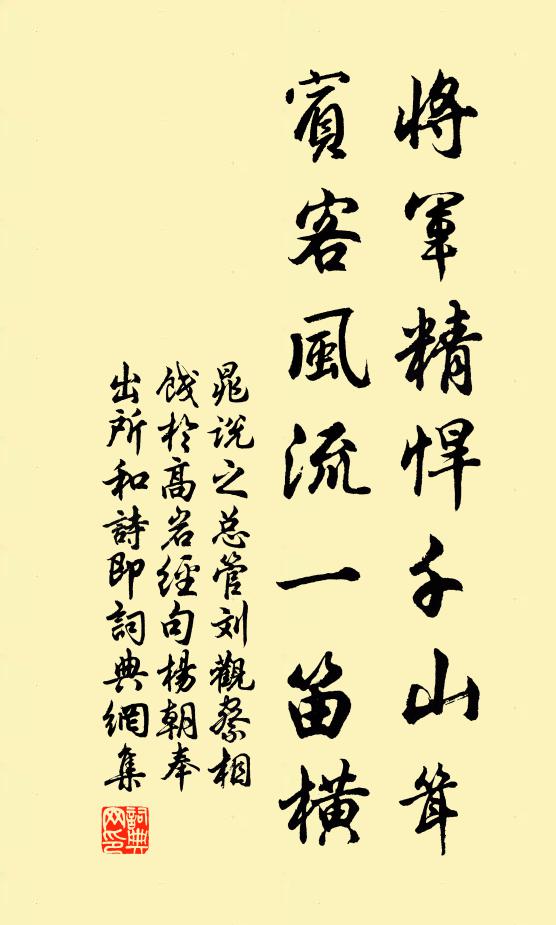 將軍精悍千山聳
賓客風流一笛橫
晁說之总管刘觀察相
餞於高岩經句楊朝奉
出所和詩即詞典網集
詞典網印